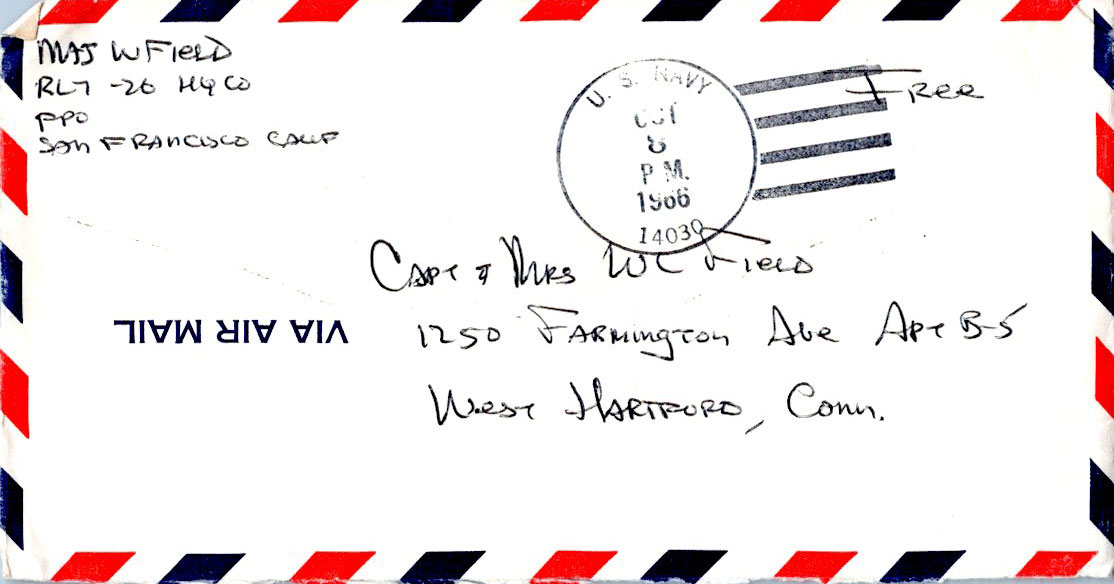 MAJ W FIELD
RLT -26 HQ CO
FPO
SAN FRANCISCO CALIF
U. S. NAVY
OCT
8
P.M.
1966
14030
FREE
CAPT & MRS WC FIELD
1250 FARMINGTON AVE APT B-5
WEST HARTFORD, CONN.
VIA AIR MAIL